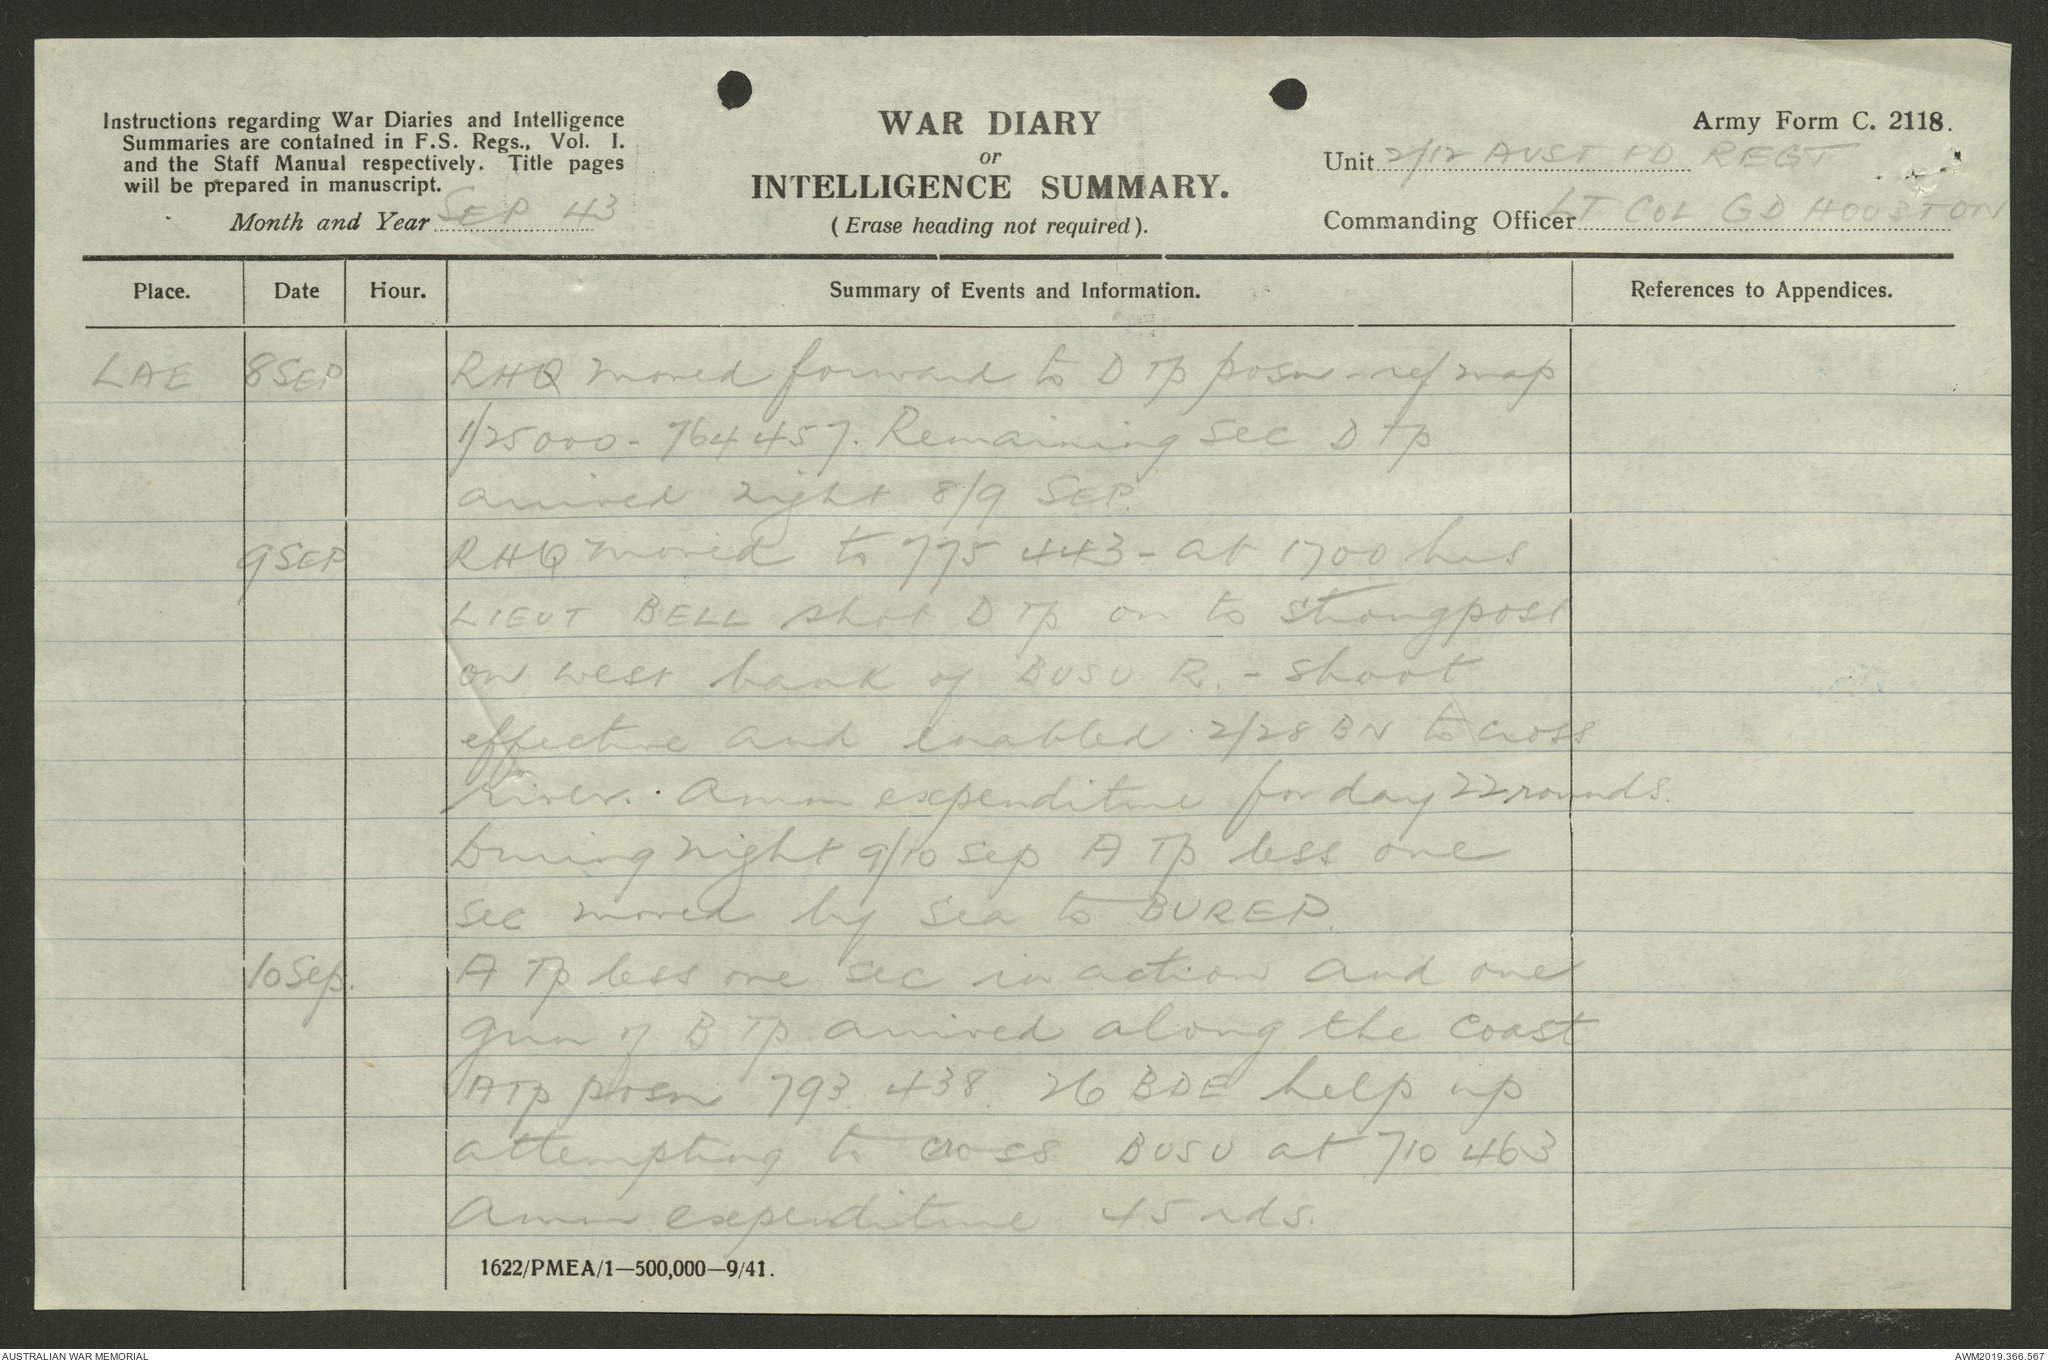 Instructions regarding War Diaries and Intelligence
Summaries are contained in F.S. Regs., Vol. I.
and the Staff Manual respectively. Title pages
will be prepared in manuscript.
Month and Year SEP 43
WAR DIARY
or
INTELLIGENCE SUMMARY.
(Erase heading not required).
Army Form C. 2118.
Unit 2/12 AUST FD REGT
Commanding Officer LT COL GD HOUSTON
Place. Date Hour. Summary of Events and Information. References to Appendices.
LAE 8 SEP RHQ moved forward to D Tp posn - ref map
1/25000 - 764 457. Remaining sec D Tp
arrived night 8/9 SEP.
9 SEP RHQ moved to 775 443 - at 1700 hrs
LIEUT BELL shot D Tp on to strongpost
on west bank of BUSU R. - shoot
effective and enabled 2/28 BN to cross
river. Amm expenditure for day 22 rounds.
During night 9/10 Sep A Tp less one
sec moved by sea to BUREP.
10 Sep. A Tp less one sec in action and one
gun of B Tp arrived along the coast
A Tp posn 793 438. 26 BDE help up
attempting to cross BUSU at 710 463
Amm expenditure 45 rds.
1622/PMEA/1—500,000—9/41.
AUSTRALIAN WAR MEMORIAL
AWM2019.366.567